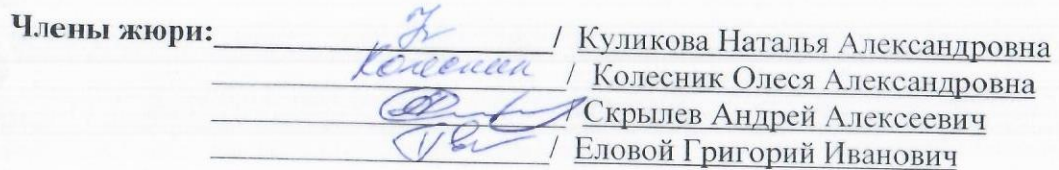 Члены жюри: / Куликова Наталья Александровна
Колесник / Колесник Олеся Александровна
/ Скрылев Андрей Алексеевич
/ Еловой Григорий Иванович